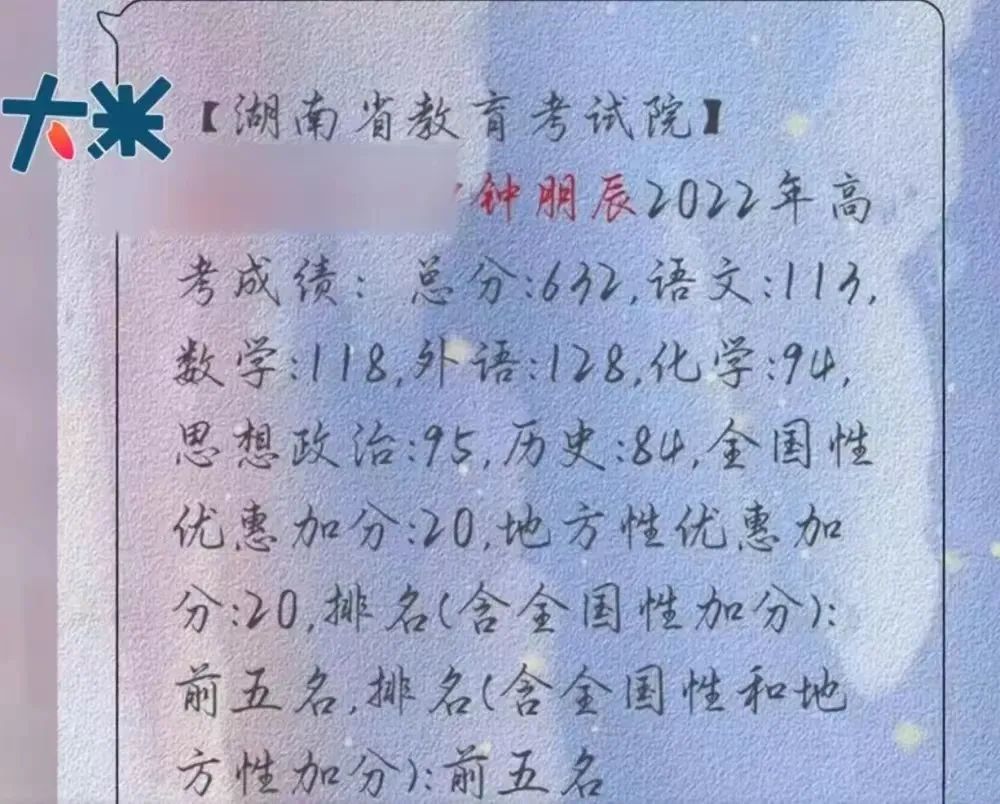 大米
【湖南省教育考试院】
钟朋辰2022年高
考成绩：总分:632,语文:113,
数学:118,外语:128,化学:94,
思想政治:95,历史:84,全国性
优惠加分:20,地方性优惠加
分:20,排名(含全国性加分):
前五名,排名(含全国性和地
方性加分):前五名